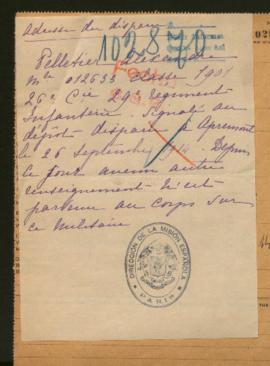 Adresse du disparu
102876
Pelletier Alexandre
Mle 012633 classe 1901
26e Cie 29e Regiment
Infanterie. Signalé au
dépôt disparu à Apremont
le 26 septembre 1914. Depuis
ce jour aucun autre
renseignement n'est
parvenu au corps sur
ce militaire
DIRECCIÓN DE LA MISIÓN ESPAÑOLA
PARIS